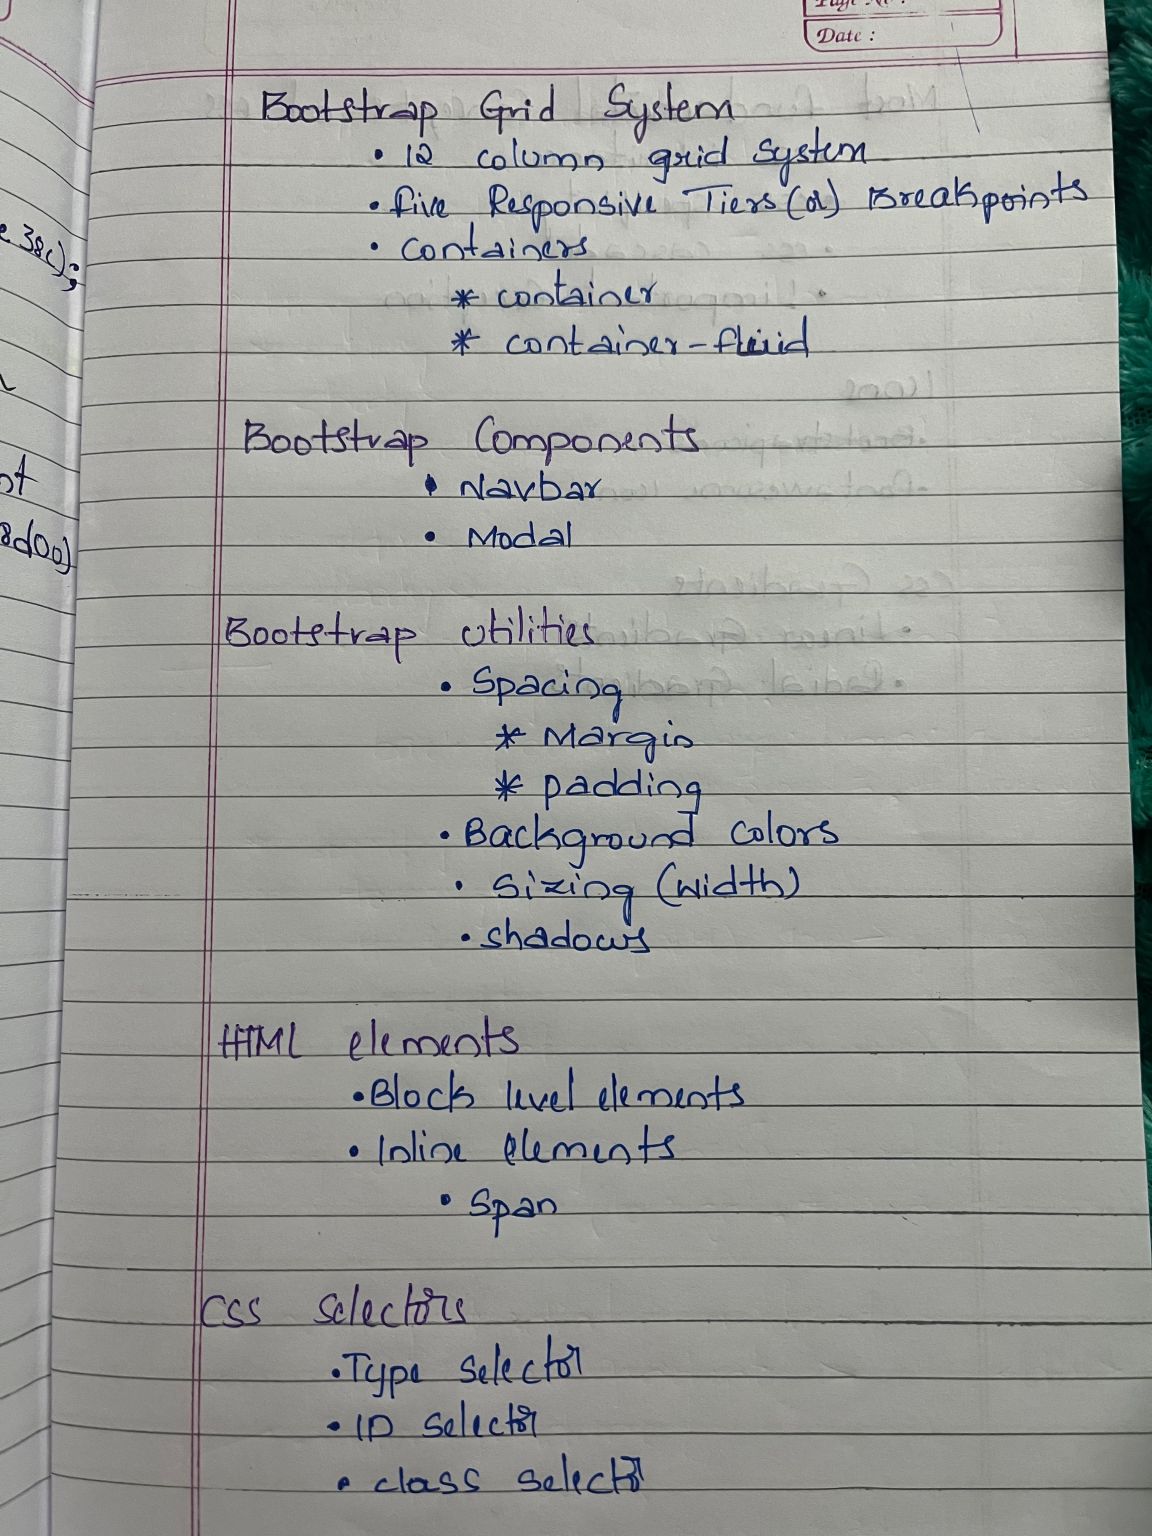 Page No :
Date :
Bootstrap Grid System
• 12 column grid system
• five Responsive Tiers (or) Breakpoints
• containers
* container
* container-fluid
Bootstrap Components
• Navbar
• Modal
Bootstrap utilities
• Spacing
* Margin
* padding
• Background colors
• Sizing (width)
• shadows
HTML elements
• Block level elements
• Inline elements
• Span
CSS Selectors
• Type Selector
• ID Selector
• class selector